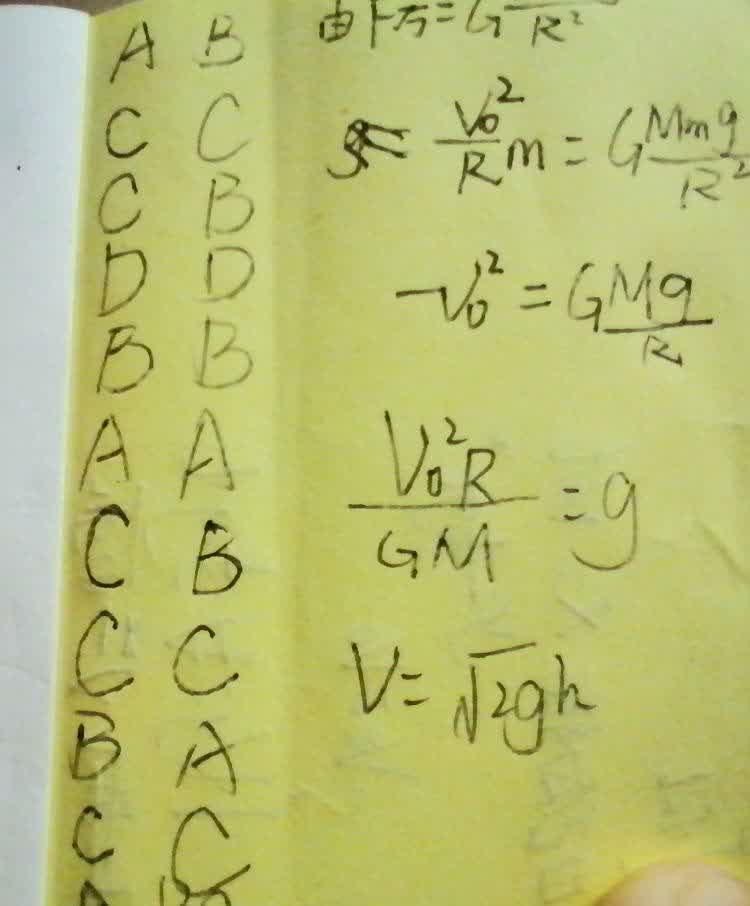 A B
C C
C B
D D
B B
A A
C B
C C
B A
C C
由F万=G/R²
V₀²/R m = G Mmg/R²
V₀² = G Mg/R
V₀²R/GM = g
V = √2gh